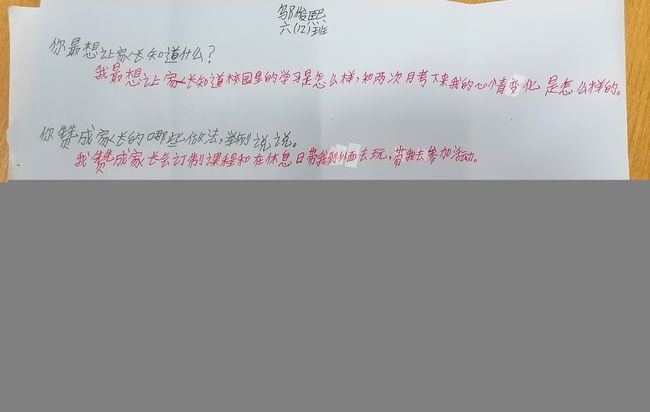 邹俊熙
六(12)班
你最想让家长知道什么?
我最想让家长知道校园里的学习是怎么样,和两次月考下来我的心情变化是怎么样的。
你赞成家长的哪些做法,举例说说。
我赞成家长会订制课程和在休息日带我到外面去玩,带我去参加活动。